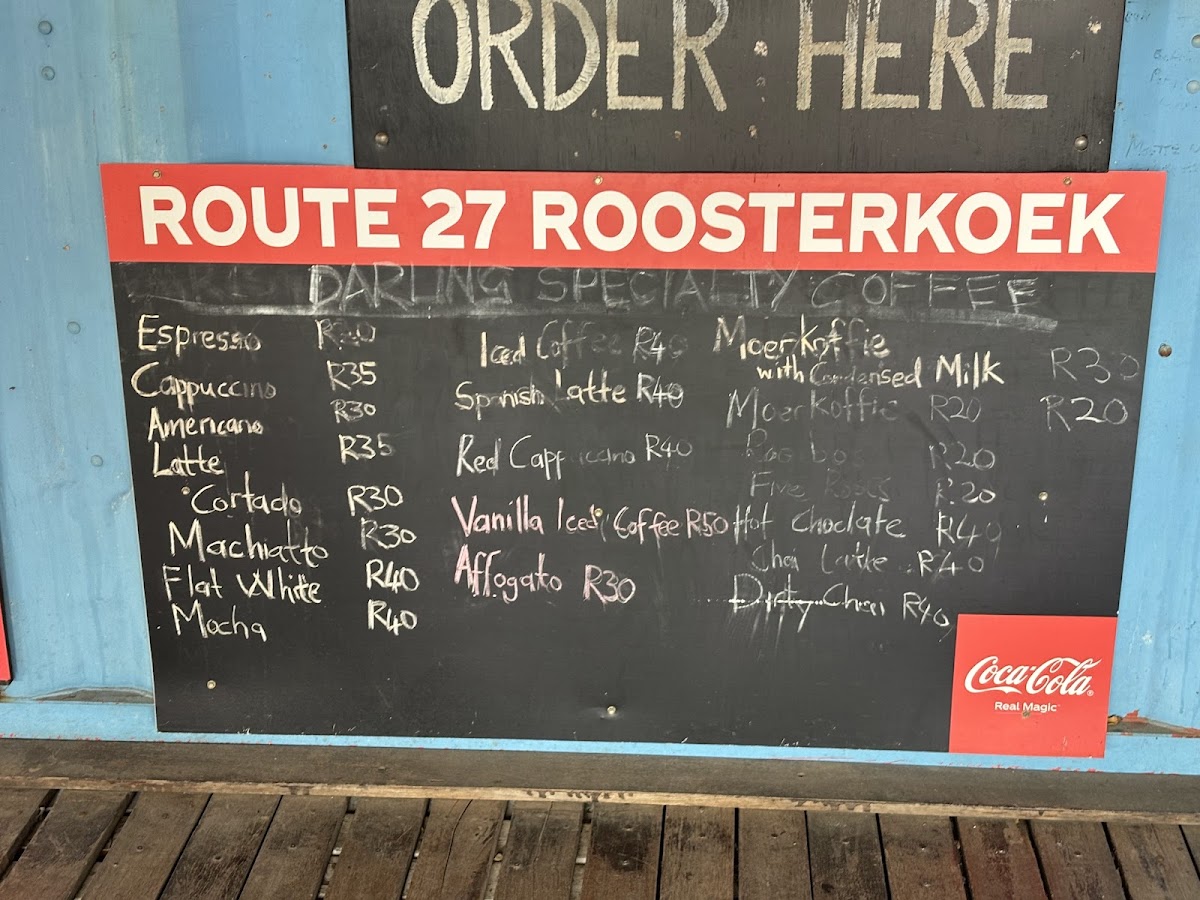 ORDER HERE
ROUTE 27 ROOSTERKOEK
DARLING SPECIALTY COFFEE
Espresso
Cappuccino R35
Americano R30
Latte R35
Cortado R30
Machiatto R30
Flat White R40
Mocha R40
Iced Coffee R40
Spanish Latte R40
Red Cappuccino R40
Vanilla Iced Coffee R50
Affogato R30
Moerkoffie
with Condensed Milk R30
Moerkoffie R20 R20
Rooibos R20
Five Roses R20
Hot Choclate R40
Chai Lattke R40
Dirty Chai R40
Coca-Cola
Real Magic